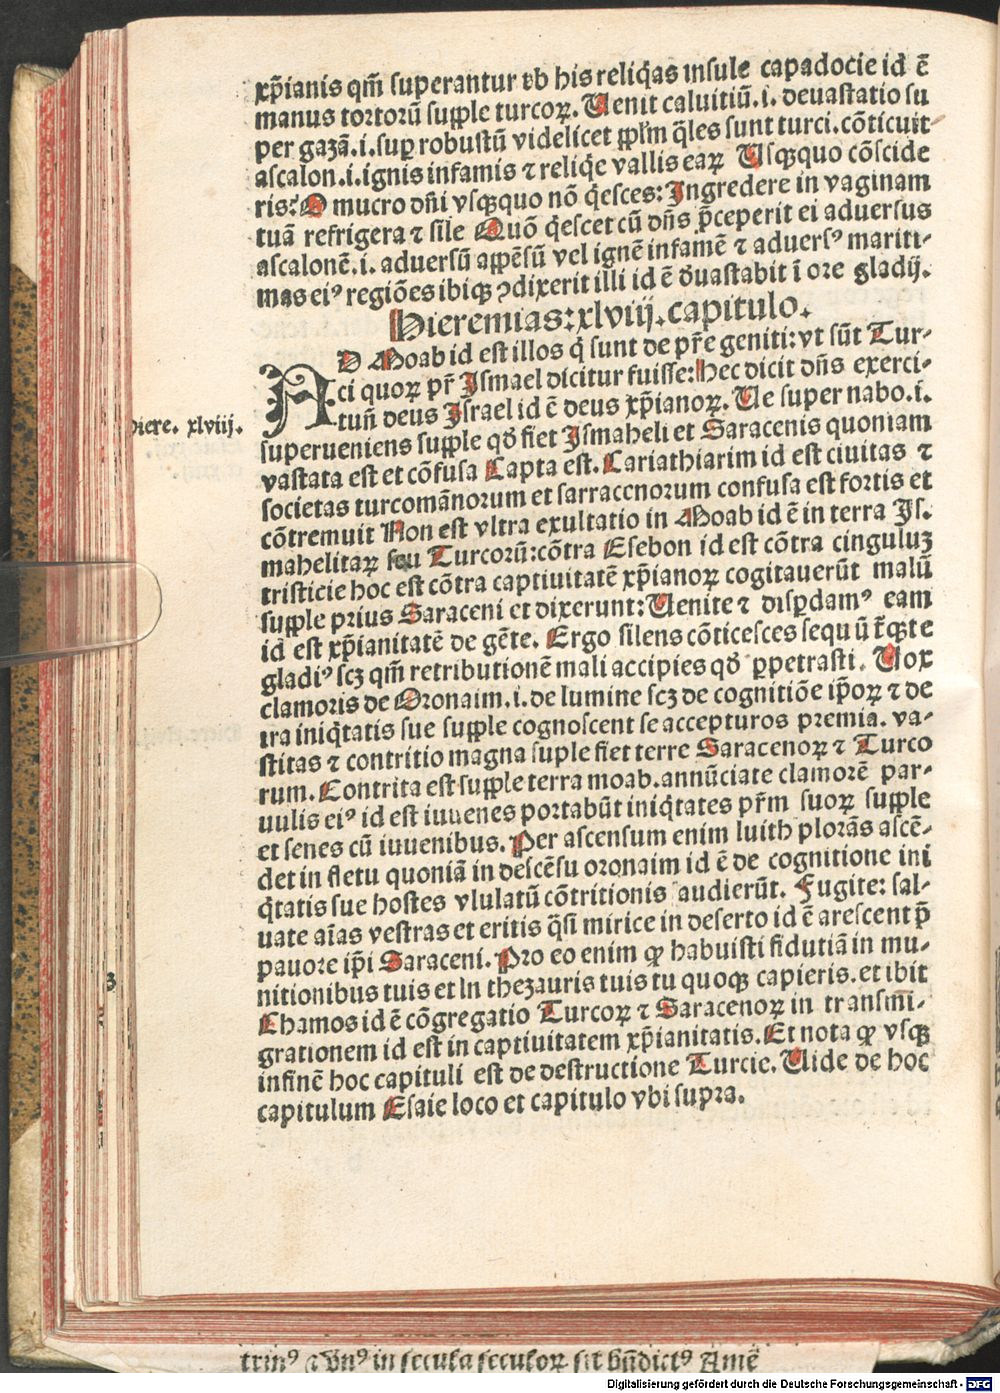 xp̄ianis qm̄ superantur ⁊b his reliq̄as insule capadocie id ē
manus tortorū supple turcoꝝ. Uenit caluitiū.i. deuastatio su
per gazā.i.suꝑ robustū videlicet pplm̄ q̄les sunt turci.cōticuit
ascalon.i.ignis infamis ⁊ reliqe vallis eaꝝ Usq̨quo cōscide
ris: O mucro dn̄i vsq̨quo nō q̄esces: Ingredere in vaginam
tuā refrigera ⁊ sile Quō q̄escet cū dn̄s p̄ceperit ei aduersus
ascalonē.i. aduersū appēsū vel ignē infamē ⁊ aduersꝰ mariti-
mas eiꝰ regiōes ibiq̨ ↄdixerit illi id ē d̄uastabit ī ore gladij.
Hieremias:xlviij.capitulo.
AD Moab id est illos q̄ sunt de pr̄e geniti:vt sūt Tur-
ci quoꝝ pr̄ Ismael dicitur fuisse:Hec dicit dn̄s exerci-
tuū deus Israel id ē deus xp̄ianoꝝ. Ue super nabo.i.
Hiere. xlviij.
superueniens supple qd̄ fiet Ismaheli et Saracenis quoniam
vastata est et cōfusa Capta est.Cariathiarim id est ciuitas ⁊
societas turcomānorum et sarracenorum confusa est fortis et
cōtremuit Non est vltra exultatio in Moab id ē in terra Is-
mahelitaꝝ seu Turcorū:cōtra Esebon id est cōtra cinguluʒ
tristicie hoc est cōtra captiuitatē xp̄ianoꝝ cogitauerūt malū
supple prius Saraceni et dixerunt:Uenite ⁊ disꝑdamꝰ eam
id est xp̄ianitatē de gēte. Ergo silens cōticesces sequūt̄q̨ te
gladiꝰ scʒ qm̄ retributionē mali accipies qd̄ ꝑpetrasti. Uox
clamoris de Oronaim.i.de lumine scʒ de cognitiōe ip̄oꝝ ⁊ de
ira iniq̄tatis sue supple cognoscent se accepturos premia. va-
stitas ⁊ contritio magna suple fiet terre Saracenoꝝ ⁊ Turco
rum.Contrita est supple terra moab.annūciate clamorē par-
uulis eiꝰ id est iuuenes portabūt iniq̄tates pr̄m suoꝝ supple
et senes cū iuuenibus.Per ascensum enim luith plorās ascē-
det in fletu quoniā in descēsu oronaim id ē de cognitione ini
q̄tatis sue hostes vlulatū cōtritionis audierūt. Fugite: sal-
uate aīas vestras et eritis q̄si mirice in deserto id ē arescent p̄
pauore ip̄i Saraceni. Pro eo enim ꝙ habuisti fidutiā in mu-
nitionibus tuis et in thezauris tuis tu quoq̨ capieris.et ibit
Chamos id ē cōgregatio Turcoꝝ ⁊ Saracenoꝝ in transmi-
grationem id est in captiuitatem xp̄ianitatis.Et nota ꝙ vsq̨
infinē hoc capituli est de destructione Turcie. Uide de hoc
capitulum Esaie loco et capitulo vbi supra.
trinꝰ ⁊ vn̄ꝰ in secula seculoꝝ sit bn̄dictꝰ Amē
Digitalisierung gefördert durch die Deutsche Forschungsgemeinschaft - DFG